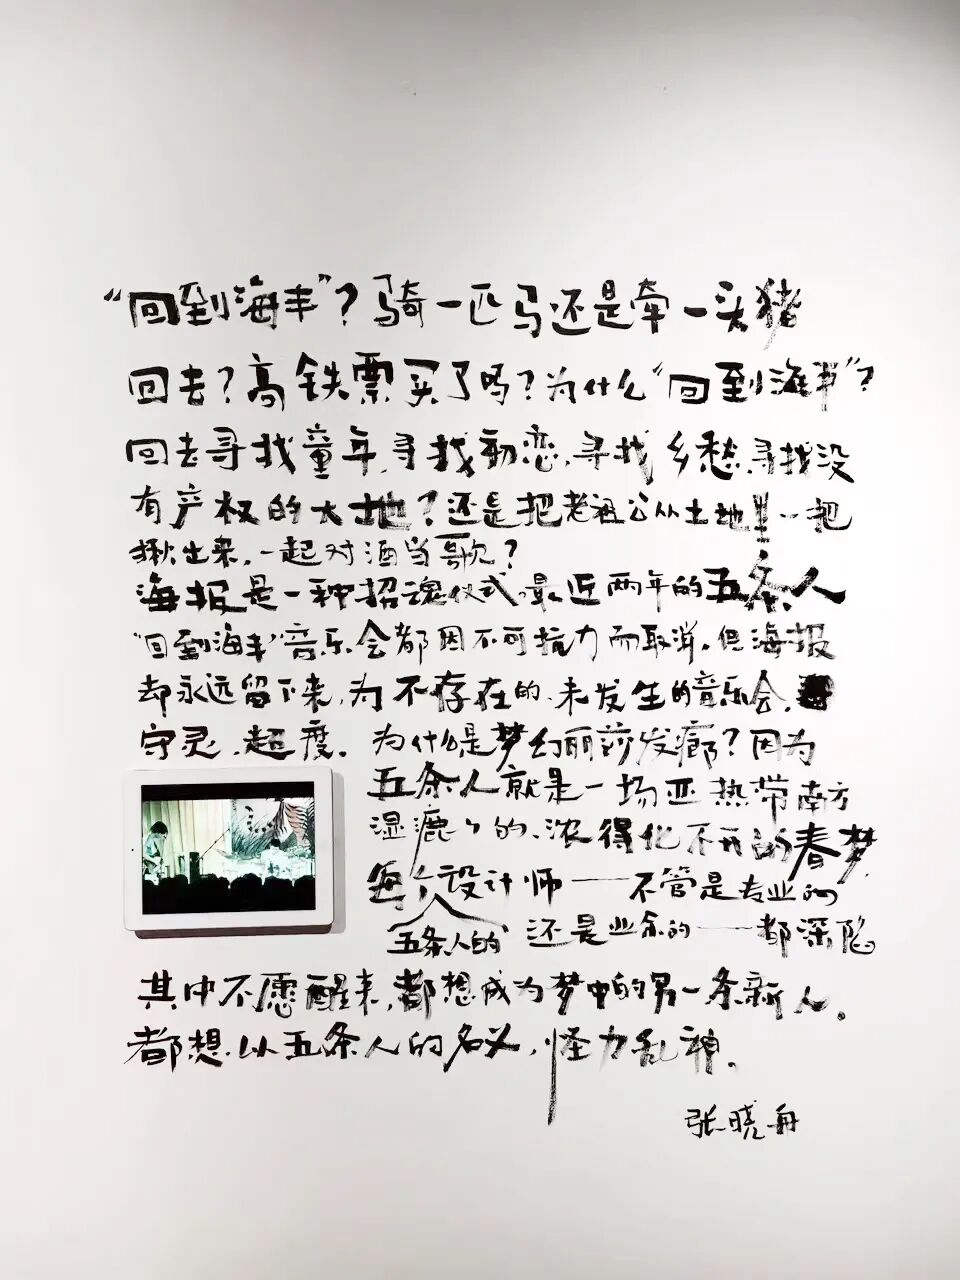 “回到海丰”？骑一匹马还是牵一头猪
回去？高铁票买了吗？为什么“回到海丰”？
回去寻找童年，寻找初恋，寻找乡愁，寻找没
有产权的大地？还是把老祖公从土地里一把
揪出来，一起对酒当歌？
海报是一种招魂仪式。最近两年的五条人
“回到海丰”音乐会都因不可抗力而取消。但海报
却永远留下来，为不存在的、未发生的音乐会，
守灵、超度。为什么是梦幻丽莎发廊？因为
五条人就是一场亚热带南方
湿漉漉的、浓得化不开的春梦
每个设计师——不管是专业的
五条人的 还是业余的——都深陷
其中不愿醒来，都想成为梦中的另一条新人。
都想以五条人的名义，怪力乱神。
张晓舟